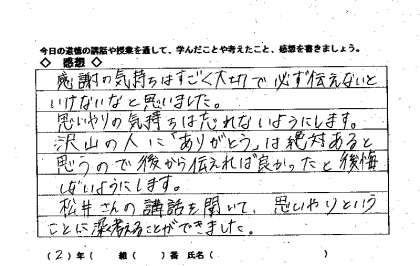 今日の道徳の講話や授業を通して、学んだことや考えたこと、感想を書きましょう。
◇ 感想 ◇
感謝の気持ちはすごく大切で必ず伝えないと
いけないなと思いました。
思いやりの気持ちは忘れないようにします。
沢山の人に「ありがとう」は絶対あると
思うので後から伝えれば良かったと後悔
しないようにします。
松井さんの講話を聞いて、思いやりという
ことに深く考えることができました。
(2)年( 組( )番 氏名( )